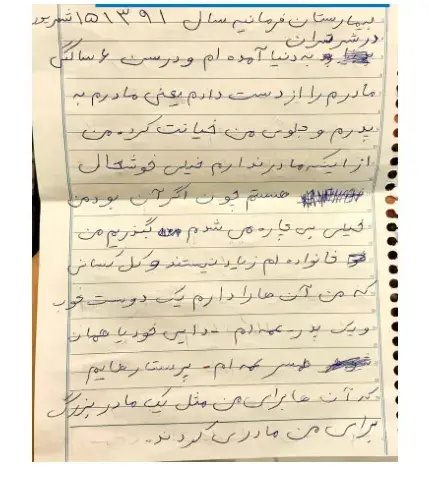 بیمارستان فرمانیه سال ۱۳۹۱ ۱۵ شهریور
در شهر تهران
به دنیا آمده ام و در سن ۶ سالگی
مادرم را از دست دادم یعنی مادرم به
پدرم و جلوی من خیانت کرد. من
از اینکه مادر ندارم خیلی خوشحال
هستم چون اگر آن بود من
خیلی بی چاره می شدم بگذریم من
خانواده ام زیاد نیستند و کل کسانی
که من آن ها را دارم یک دوست خوب
و یک پدر - عمه ام - دایی خود یا همان
همسر عمه ام - پرستارهایم
که آن ها برای من مثل یک مادر بزرگ
برای من مادری کردند.